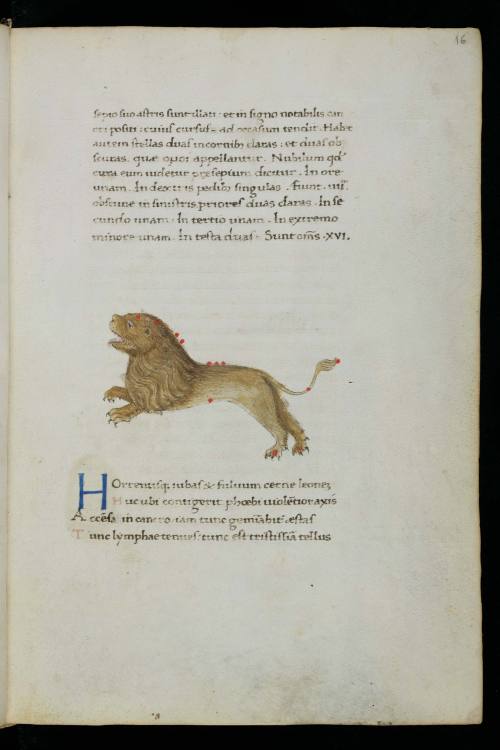 16
sepio suo astris sunt illati : et in signo notabilis can
cri positi : cuius cursus ad occasum tendit. Habet
autem stellas duas in cornibus claras : et duas obs
scuras, quae opoi appellantur. Nubilum qd
circa eum uidetur presepium dicitur. In ore
unam. In dextris pedibus singulas. Fiunt. iiii.
obscure in sinistris priores duas claras. In se
cundo unam. In tertio unam. In extremo
minore unam. In testa duas. Sunt oms .XVI.
Horrentisq; iubas & fuluum cerne leonez
Huc ubi contigerit phoebi uiolentior axis
Accensa in cancro iam tunc geminabit aestas
Tunc lymphae tenues : tunc est tristissima tellus